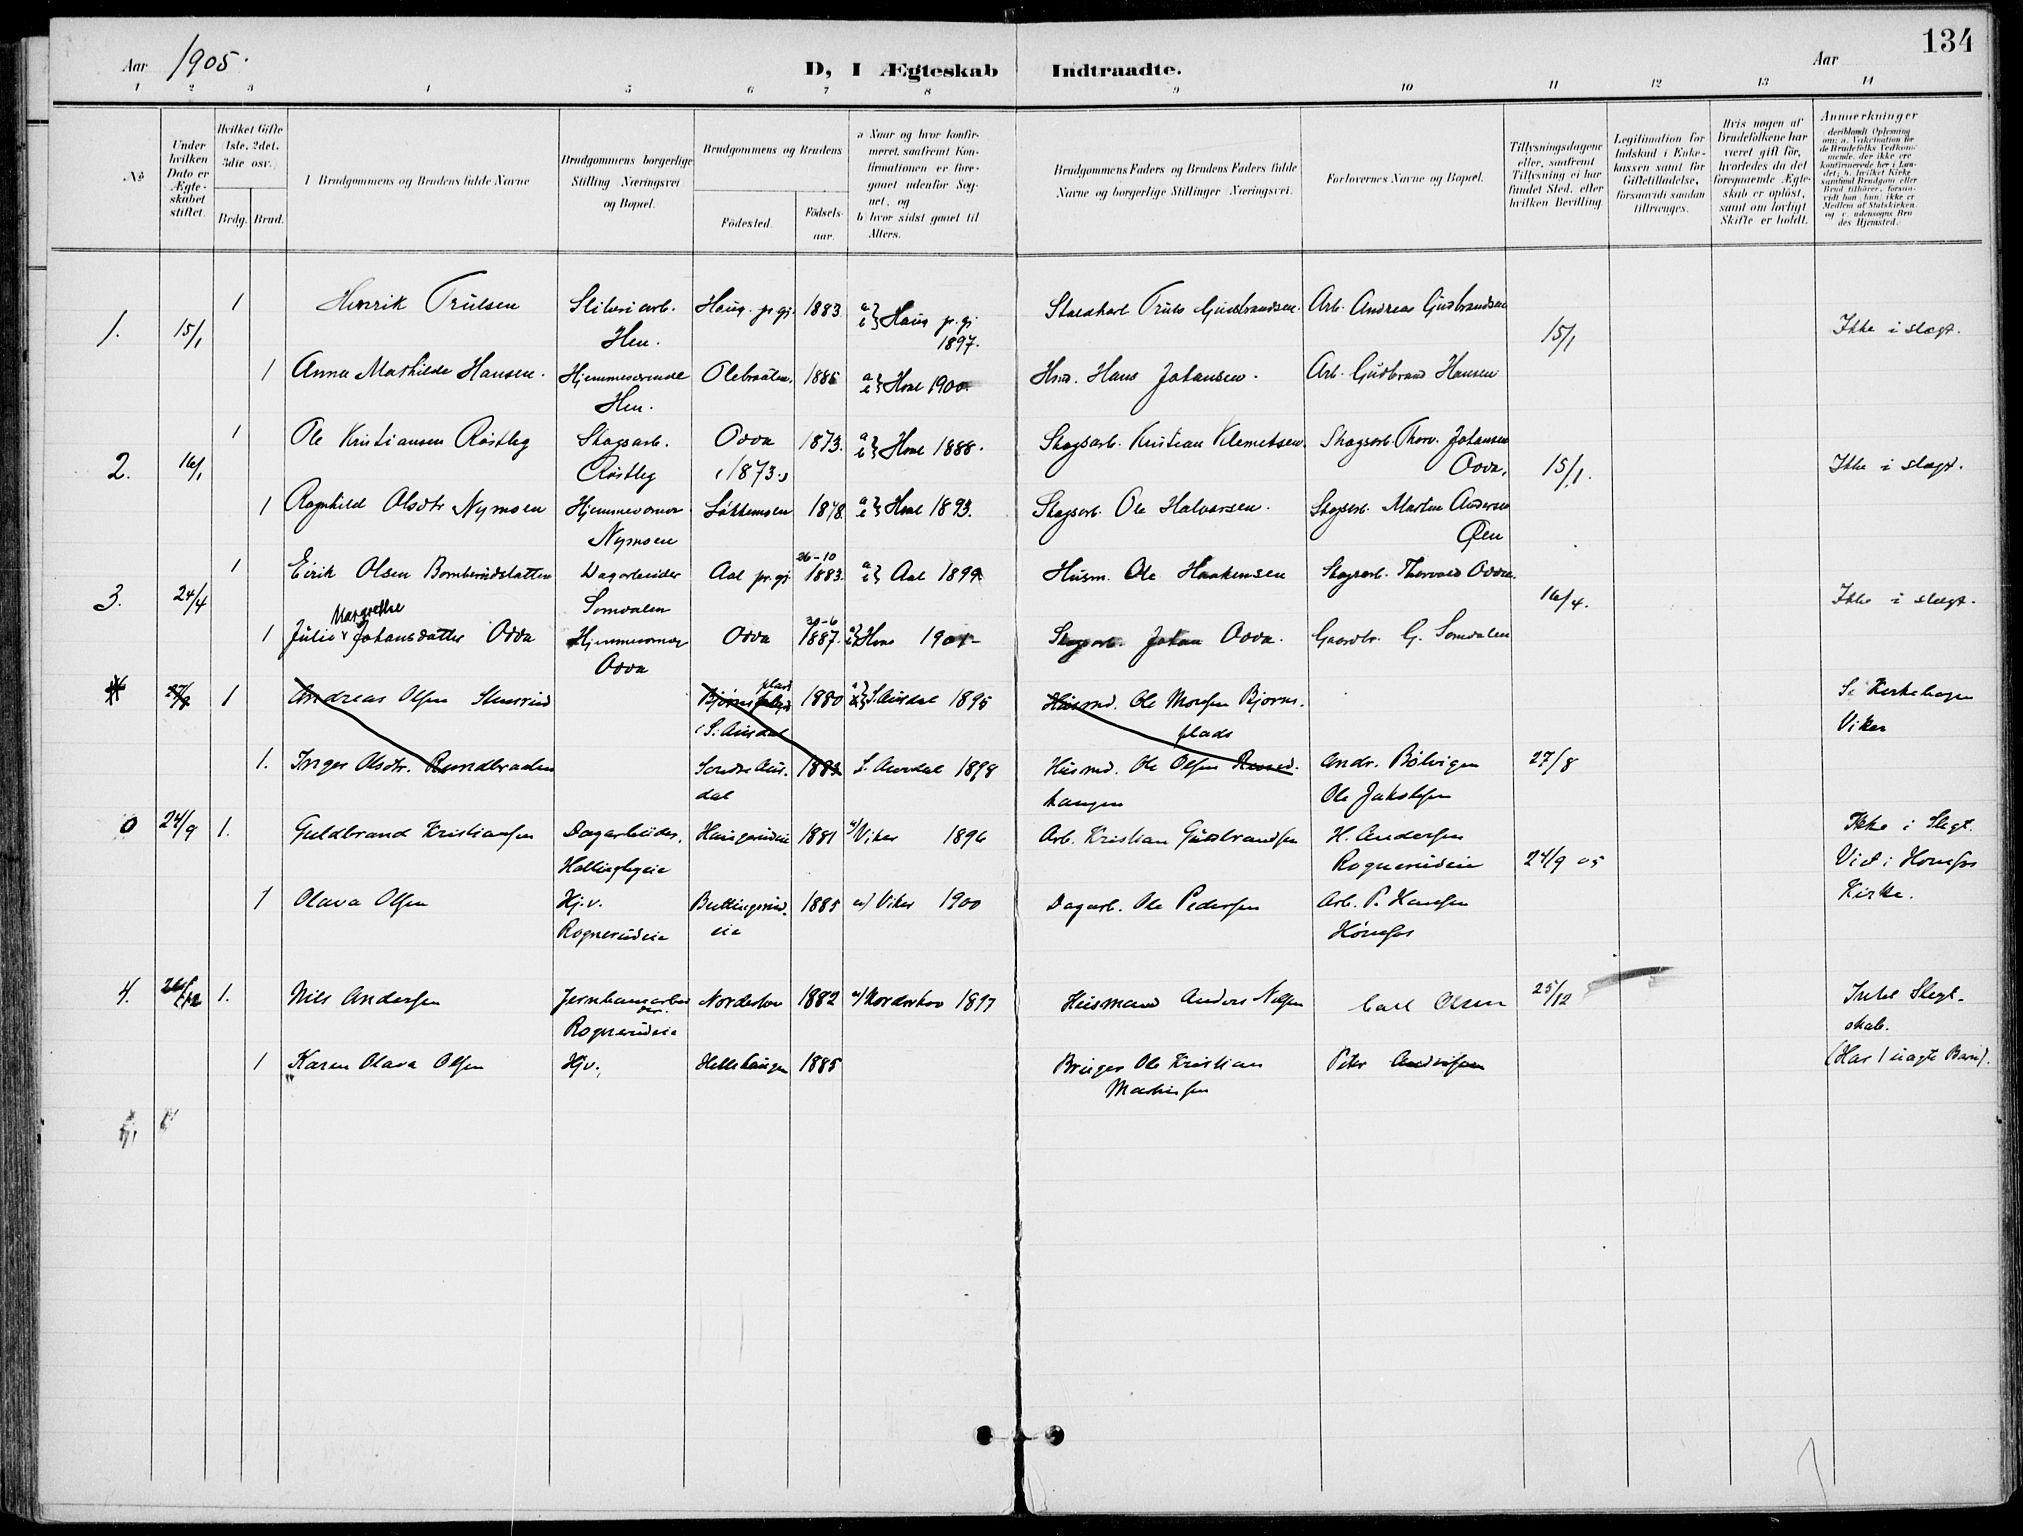 134
Aar 1905.
D, I Ægteskab Indtraadte.
Aar
1 2 3 4 5 6 7 8 9 10 11 12 13 14
No
Under hvilken Dato er Ægteskabet stiftet.
Hvilket Gifte 1ste. 2det. 3die osv.
Brdg. Brud.
Brudgommens og Brudens fulde Navne
Brudgommens borgerlige Stilling Næringsvei og Bopæl.
Brudgommens og Brudens
Fødested.
Fødselsaar.
a Naar og hvor konfirmeret, saafremt Konfirmationen er foregaaet udenfor Sognet, og
b hvor sidst gaaet til Alters.
Brudgommens Faders og Brudens Faders fulde Navne og borgerlige Stillinger Næringsvei.
Forlovernes Navne og Bopæl.
Tillysningsdagene eller, saafremt Tillysning ei har fundet Sted, efter hvilken Bevilling.
Legitimation for Indskud i Enkekassen samt for Giftetilladelse, forsaavidt saadan tiltrænges.
Hvis nogen af Brudefolkene har været gift før, hvorledes da det foregaaende Ægteskab er opløst, samt om lovligt Skifte er holdt.
Anmerkninger
deriblandt Oplysning om: a. Vakcination for de Brudefolks Vedkommende, der ikke ere konfirmerede her i Landet; b. hvilket Kirkesamfund Brudgom eller Brud tilhører, forsaavidt han, hun, ikke er Medlem af Statskirken, og c. udensogns Brudes Hjemsted.
1. 15/1 1 Henrik Trulsen Sliberiarb. Hen. Haug pr.gj. 1883 a b Haug pr.gj. 1897. Truls Gudbrandsen. Arb. Andreas Gudbrandsen 15/1 Ikke i slegt.
1 Anna Mathilde Hansen. Hjemmeværende Hen. Olebraaten. 1885 a b Hval 1900. Hans Johansen. Arb. Gudbrand Hansen
2. 16/1 1 Ole Kristiansen Røstleg Skogsarb. Røstleg Odda (1873.) 1873. a b Hval 1888. Skogsarb. Kristian Klemetsen. Skogsarb. Thorv. Johansen Odda, 15/1. Ikke i slegt.
1 Ragnhild Olsdtr Nymoen Hjemmeværende Nymoen Løkkemoen 1878. a b Hval 1893. Skogsarb. Ole Halvorsen. Skogsarb. Martin Andersen Øen
3. 24/4 1 Eirik Olsen Dagarbeider Somdalen Aal pr.gj. 26-10 1883. a b Aal 1899. Husm. Ole Haakensen Skogsarb. Thorvald Odda. 16/4. Ikke i slegt.
1 Julie Margrethe Johansdatter Odda Hjemmeværende Odda Odda 1887. Hval 1901 Skogsarb. Johan Odda. Gaardbr. G. Somdalen
1 Andreas Olsen 1880 S. Aurdal 1895 Husmd. Ole Monsen Bjørnsplads Se Kirkebogen Viker
1. Inger Olsdr. Søndre Aurdal 1883 S. Aurdal 1898 Husmd. Ole Olsen Andr. Bølvigen Ole Jakobsen 27/8
0 24/9 1. Guldbrand Kristiansen Dagarbeider, Hallingbyeie 1881 a) Viker 1896 Arb. Kristian Gudbrandsen H. Andersen Rognerudeie 24/9 05 Ikke i Slegt. Viet i Hønefos Kirke.
1 Olava Olsen Hj.v. Rognerudeie Buttingsrudeie 1885 a) Viker 1900 Dagarb. Ole Pedersen Arb. P. Hansen Hønefos
4. 26/12 1. Nils Andersen Jernbanearbeider. Rognerudeie Norderhov 1882 a) Norderhov 1897 Husmand Anders Nilsen Carl Olsen 25/12 Intet Slegtskab.
1 Karen Olava Olsen Hjv. Hellehaugen 1885 Ole Kristian Mathisen Peter Andersen (Har 1 uægte Barn).